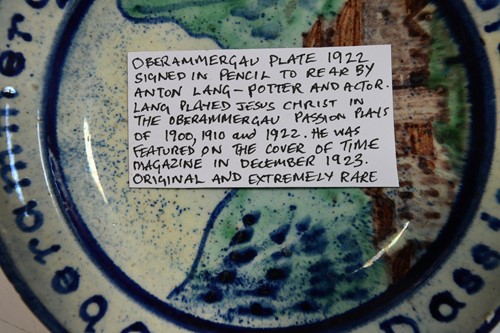 OBERAMMERGAU PLATE 1922
SIGNED IN PENCIL TO REAR BY
ANTON LANG - POTTER AND ACTOR.
LANG PLAYED JESUS CHRIST IN
THE OBERAMMERGAU PASSION PLAYS
OF 1900, 1910 and 1922. HE WAS
FEATURED ON THE COVER OF TIME
MAGAZINE IN DECEMBER 1923.
ORIGINAL AND EXTREMELY RARE
Oberammer
Passi